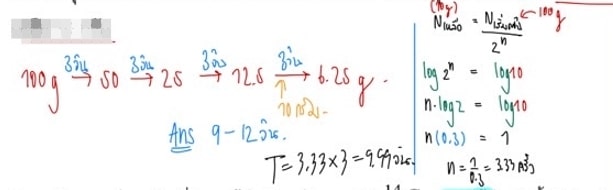 100g →3วัน 50 →3วัน 25 →3วัน 12.5 →3วัน 6.25 g.
↑
10 กรัม.
Ans 9-12 วัน.
T = 3.33 × 3 = 9.99 วัน.
(10g)
Nเหลือ = Nเริ่มต้น / 2ⁿ ← 100 g
log 2ⁿ = log10
n·log2 = log10
n(0.3) = 1
n = 1/0.3 = 3.33 ครั้ง